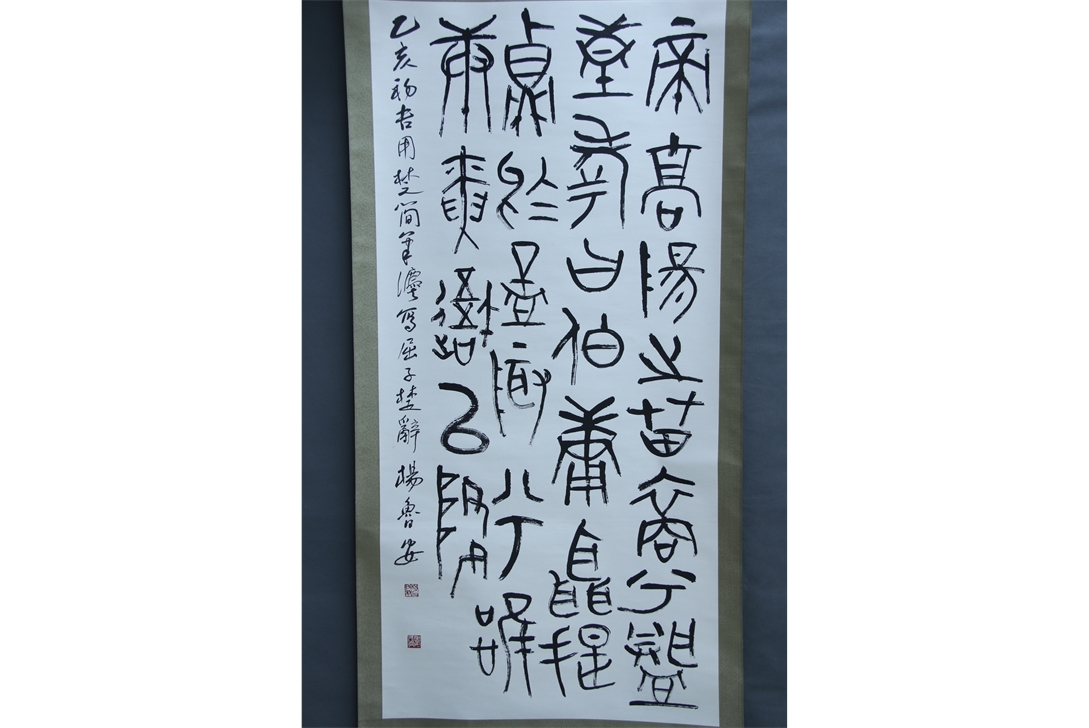 帝高陽之苗裔兮朕
皇考曰伯庸聶提
貞於孟陬兮唯
庚寅吾以降
乙亥初吉用楚簡筆灋寫屈子楚辭 楊魯安